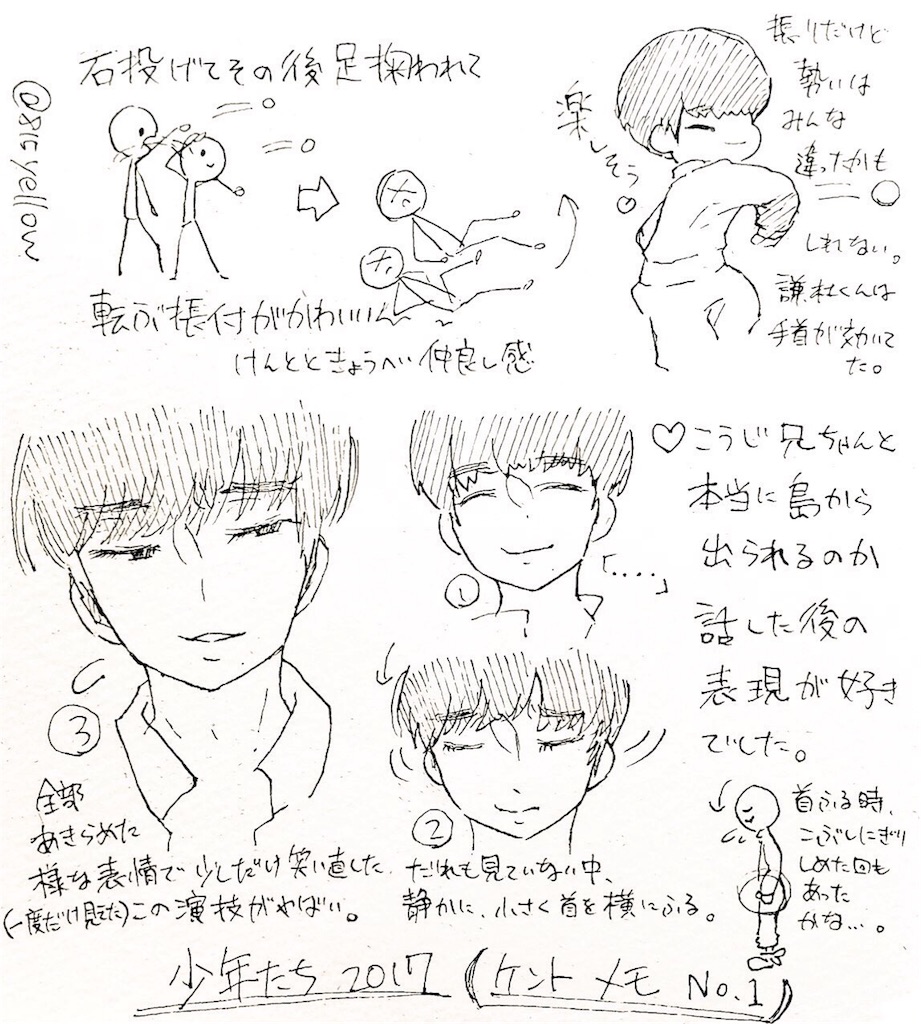 石投げてその後足掬われて
@81cyellow
転ぶ振付がかわいい〜
けんとときょうへい仲良し感
楽しそう♡
振りだけど
勢いは
みんな
違ったかも
しれない。
謙杜くんは
手首が効いて
た。
♡こうじ兄ちゃんと
本当に島から
出られるのか
話した後の
表現が好き
でした。
①
「....」
②
だれも見ていない中、
静かに、小さく首を横にふる。
③
全部
あきらめた
様な表情で少しだけ笑い直した
(一度だけ見てた)この演技がやばい。
首ふる時、
こぶしにぎり
しめた回も
あった
かな…。
少年たち 2017 (ケント メモ No.1)